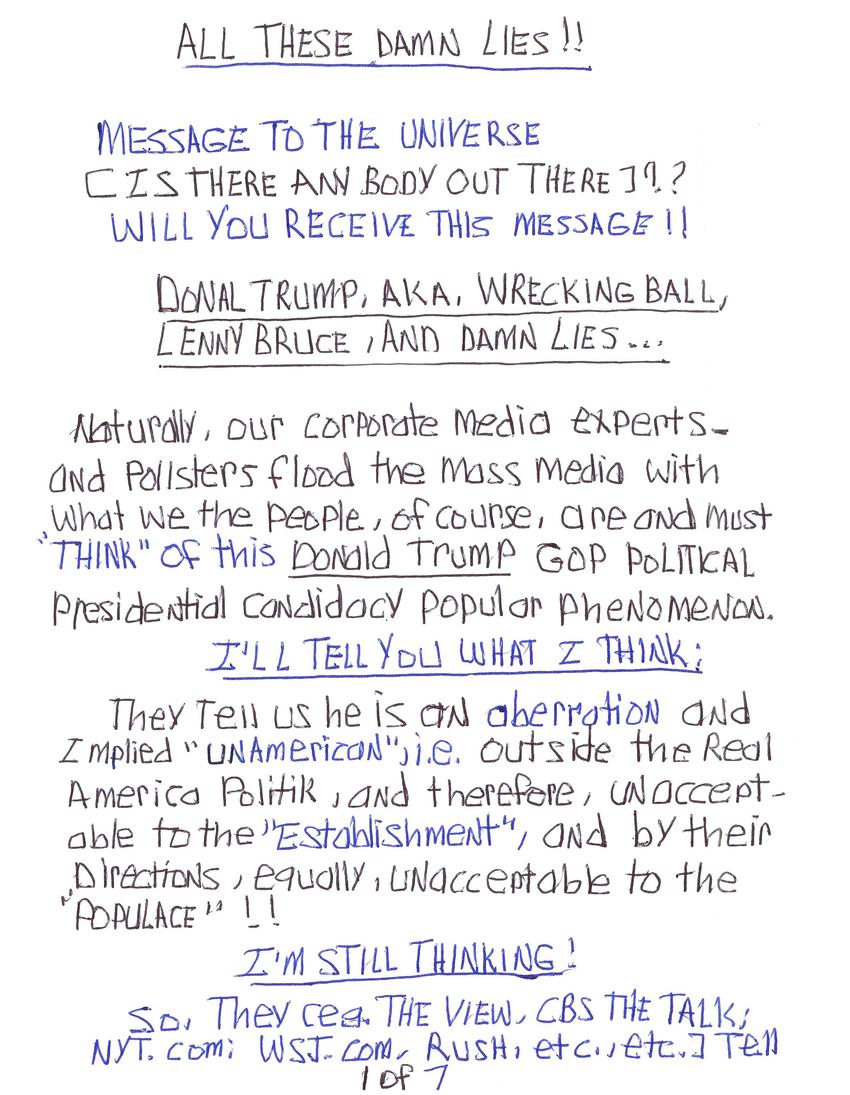 ALL THESE DAMN LIES!!
MESSAGE TO THE UNIVERSE
[IS THERE ANY BODY OUT THERE]??
WILL YOU RECEIVE THIS MESSAGE!!
DONAL TRUMP, AKA, WRECKING BALL,
LENNY BRUCE, AND DAMN LIES...
Naturally, our corporate media experts-
and Pollsters flood the mass media with
what we the people, of course, are and must
"THINK" of this Donald Trump GOP POLITICAL
Presidential Candidacy popular phenomenon.
I'LL TELL YOU WHAT I THINK:
They Tell us he is an aberration and
Implied "UNAmerican", i.e. outside the Real
America Politik, and therefore, unaccept-
able to the "Establishment", and by their
Directions, equally, unacceptable to the
"POPULACE"!!
I'M STILL THINKING!
So, They [eg. THE VIEW, CBS THE TALK;
NYT.com; WSJ.com, RUSH, etc., etc.] Tell
1 of 7